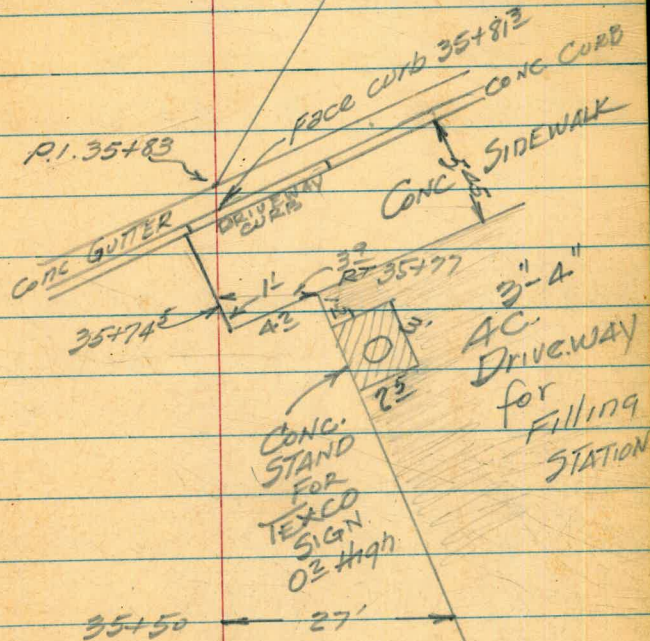 Face curb 35+81³
CONC CURB
P.I. 35+83
SIDEWALK
CONC
DRIVEWAY
CURB
CONC GUTTER
3⁹
RT 35+77
1¹
4²
35+74⁵
3'
2⁵
3"-4"
AC.
Driveway
for
Filling
STATION
CONC.
STAND
FOR
TEXCO
SIGN
0² High
35+50
27'